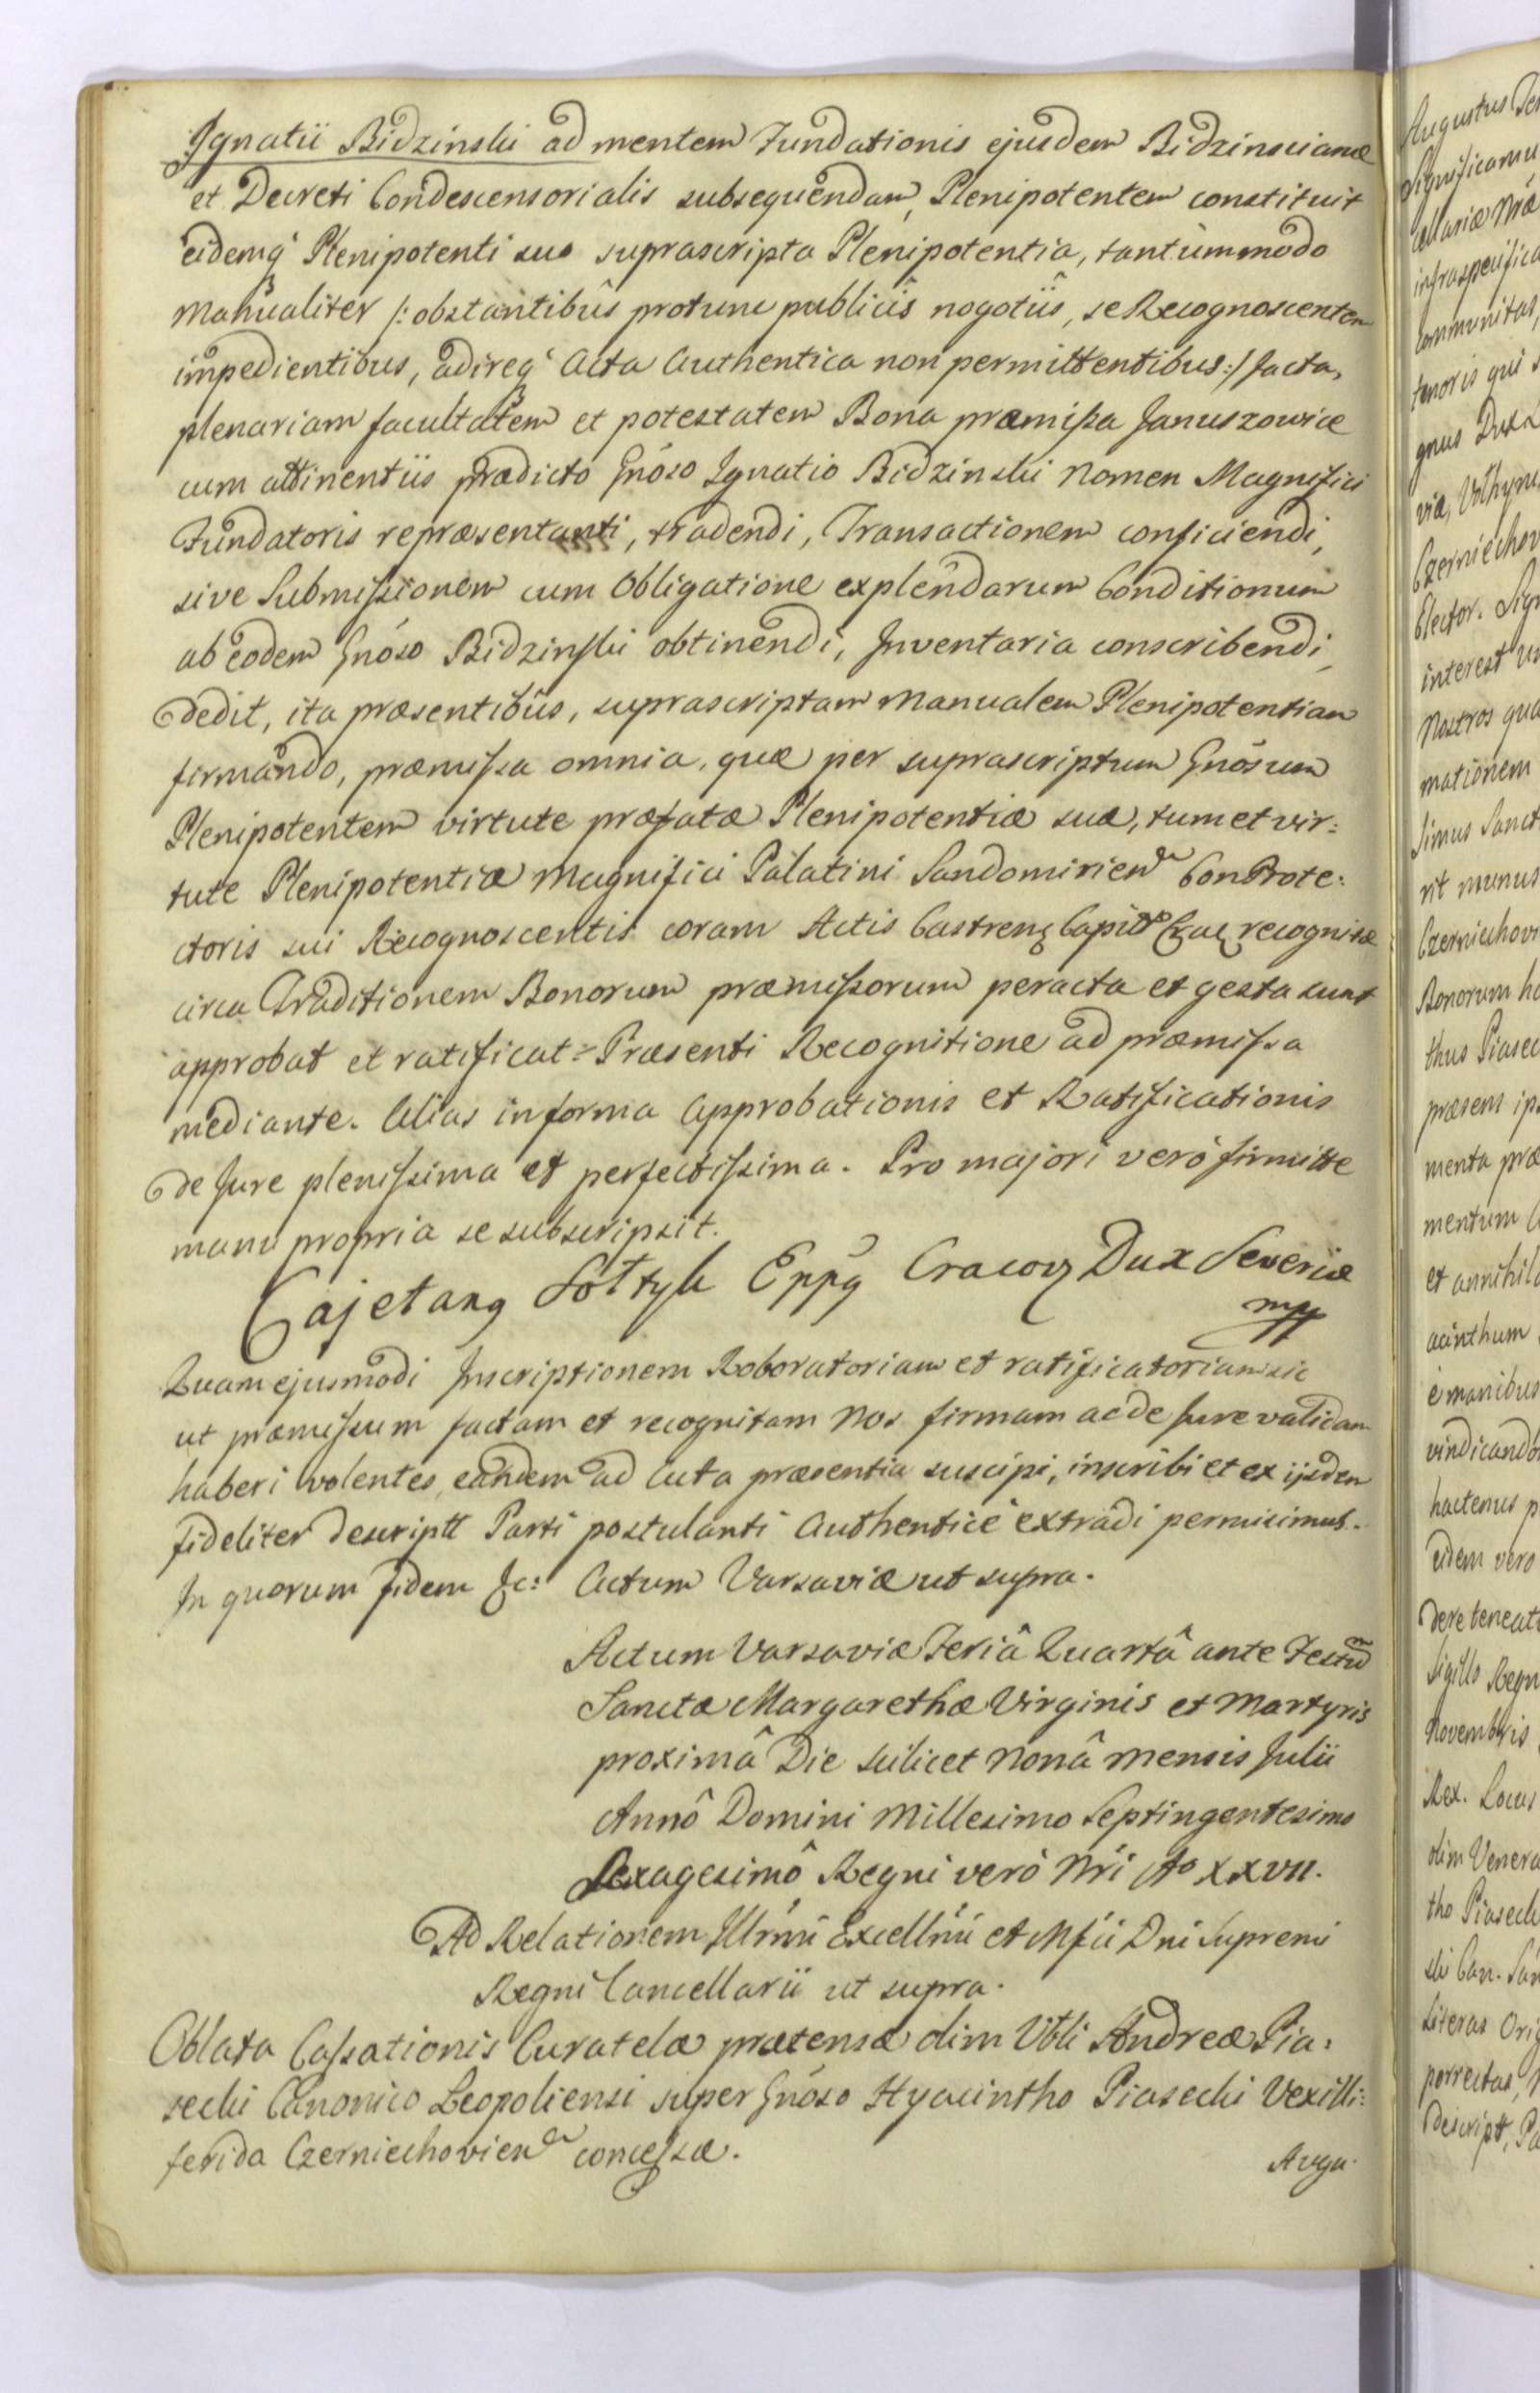 Ignatii Bidzinski ad mentem Fundationis ejusdem Bidzinscianæ
et Decreti Condescensorialis subsequendam, Plenipotentem constituit
eidemq́ Plenipotenti suo suprascripta Plenipotentia, tantùmmodo
manualiter /: obstantibûs protunc publicîs nogotiîs, se Recognoscentem
impedientibus, adireq́ Acta Authentica non permittentibus :/ facta,
plenariam facultatem et potestatem Bona præmissa Januszowice
cum attinentiis prædicto Gnóso Ignatio Bidzinski Nomen Magnifici
Fundatoris repræsentanti, tradendi, Transactionem conficiendi,
sive Submissionem cum Obligatione explendarum Conditionum
ab eodem Gnóso Bidzinski obtinendi, Inventaria conscribendi,
dedit, ita præsentibûs, suprascriptam Manualem Plenipotentiam
firmando, præmissa omnia, quæ per suprascriptum Gnósum
Plenipotentem virtute præfatæ Plenipotentiæ suæ, tum et vir:
tute Plenipotentiæ Magnifici Palatini Sandomirien ConProte:
ctoris sui Recognoscentis coram Actis Castren Capit recognitæ
circa Traditionem Bonorum præmissorum peracta et gesta sunt
approbat et ratificat Præsenti Recognitione ad præmissa
mediante. Alias in forma Approbationis et Ratificationis
de Jure plenissima et perfectissima. Pro majori verò firmitte
manu propria se subscripsit.
Cajetang Sołtyk Eppg Cracov Dux Severiæ
mpp
Quam ejusmodi Inscriptionem Roboratoriam et ratificatoriam sic
ut præmissum factam et recognitam Nos firmam ac de Jure validam
haberi volentes, eandem ad Acta præsentia suscipi, inscribi et ex ijsdem
fideliter descriptt Parti postulanti Authenticè extradi permisimus.
In quorum fidem &c: Actum Varsaviæ ut supra.
Actum Varsaviæ Feriâ Quartâ ante Festum
Sanctæ Margarethæ Virginis et Martyris
proximâ Die scilicet Nonâ Mensis Julii
Annô Domini Millesimo Septingentesimo
Sexagesimô Regni verò Nri Ao XXVII.
Ad Relationem Illrmi Excellmi et Mfci Dni Supremi
Regni Cancellarii ut supra.
Oblata Cassationis Curatelæ prætensæ olim Vbli Andreæ Pia:
secki Canonico Leopoliensi super Gnóso Hyacintho Piasecki Vexilli:
ferida Czerniechovien concessæ.
Augu
Augustus
Significamus
infraspecifica
communitas,
tenoris qui
gnus Dux
viæ, Volhyniæ
Czerniechov
Elector. Sign
interest
Nostros qua
mationem
simus Sanct
rit munus
Czerniechovi
Bonorum ha
thus Piasec
præsens ip
menta præ
mentum
et annihila
acinthum
è manibus
vindicando
hactenus p
eidem vero
dere teneat
Sigillo Regni
Novembris
Rex. Locus
olim Venera
tho Piasecki
ski Can. San
Literas Orig
porrectas,
descriptt, Pa